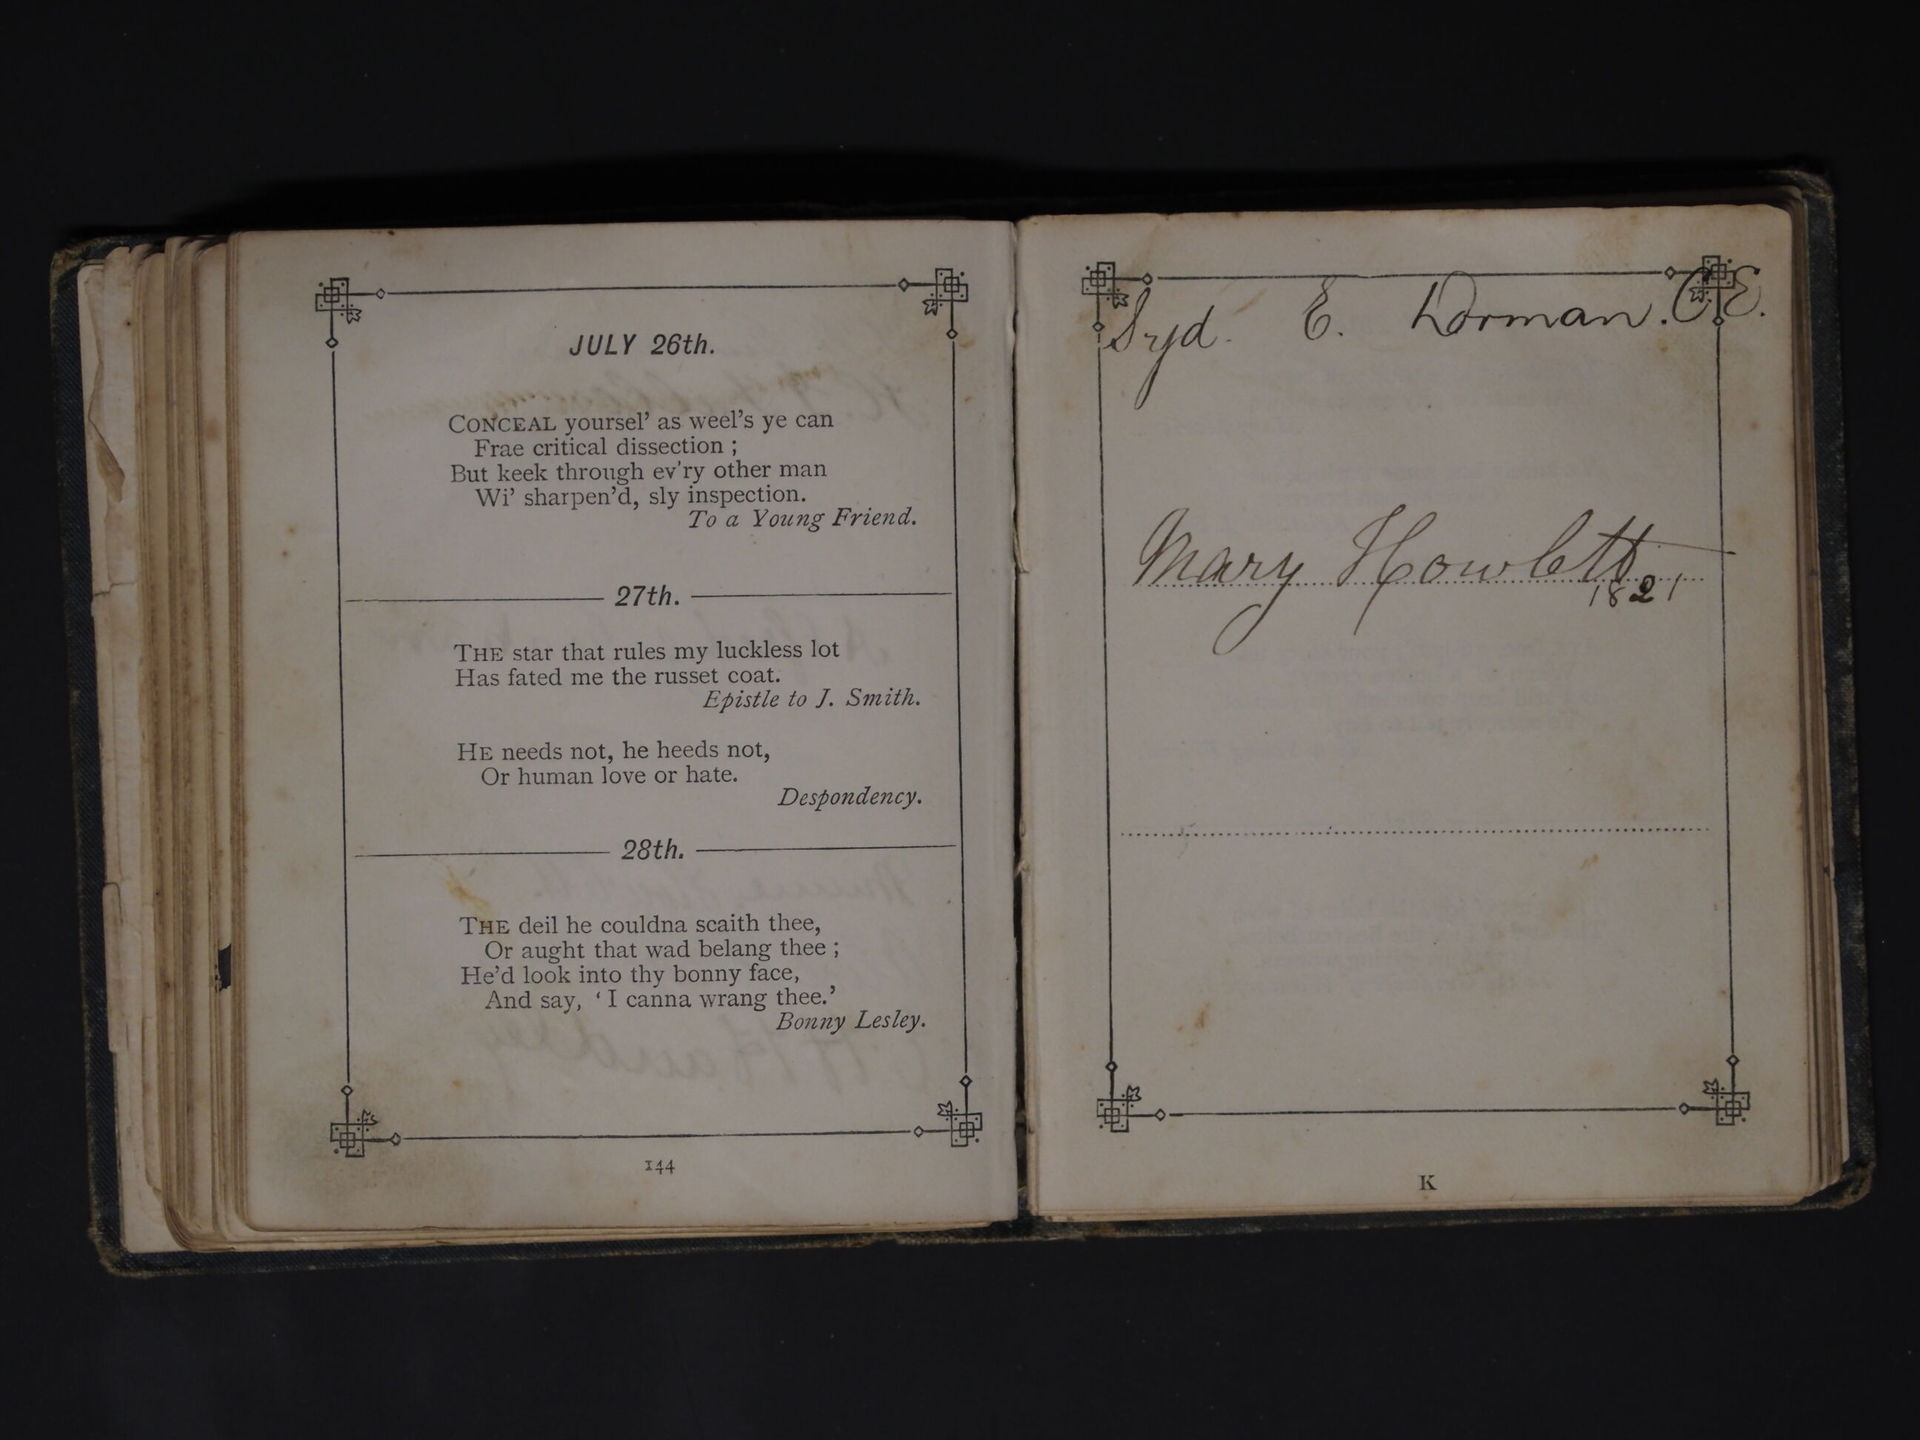 JULY 26th.
CONCEAL yoursel' as weel's ye can
Frae critical dissection ;
But keek through ev'ry other man
Wi' sharpen'd, sly inspection.
To a Young Friend.
27th.
THE star that rules my luckless lot
Has fated me the russet coat.
Epistle to J. Smith.
HE needs not, he heeds not,
Or human love or hate.
Despondency.
28th.
THE deil he couldna scaith thee,
Or aught that wad belang thee ;
He'd look into thy bonny face,
And say, ‘I canna wrang thee.’
Bonny Lesley.
144
Syd. E. Dorman. C.E.
Mary Howlett
1821
K